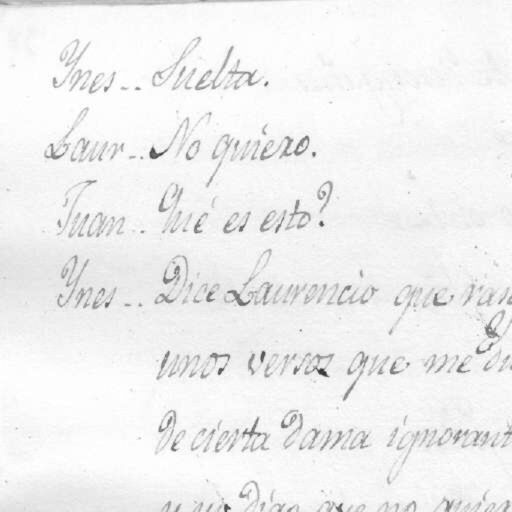 Ynes.. Suelta.
Laur.. No quiero.
Juan.. Qué es esto?
Ynes.. Dice Laurencio que ras
unos versos que me di
de cierta dama ignorant
y yo digo que no quier